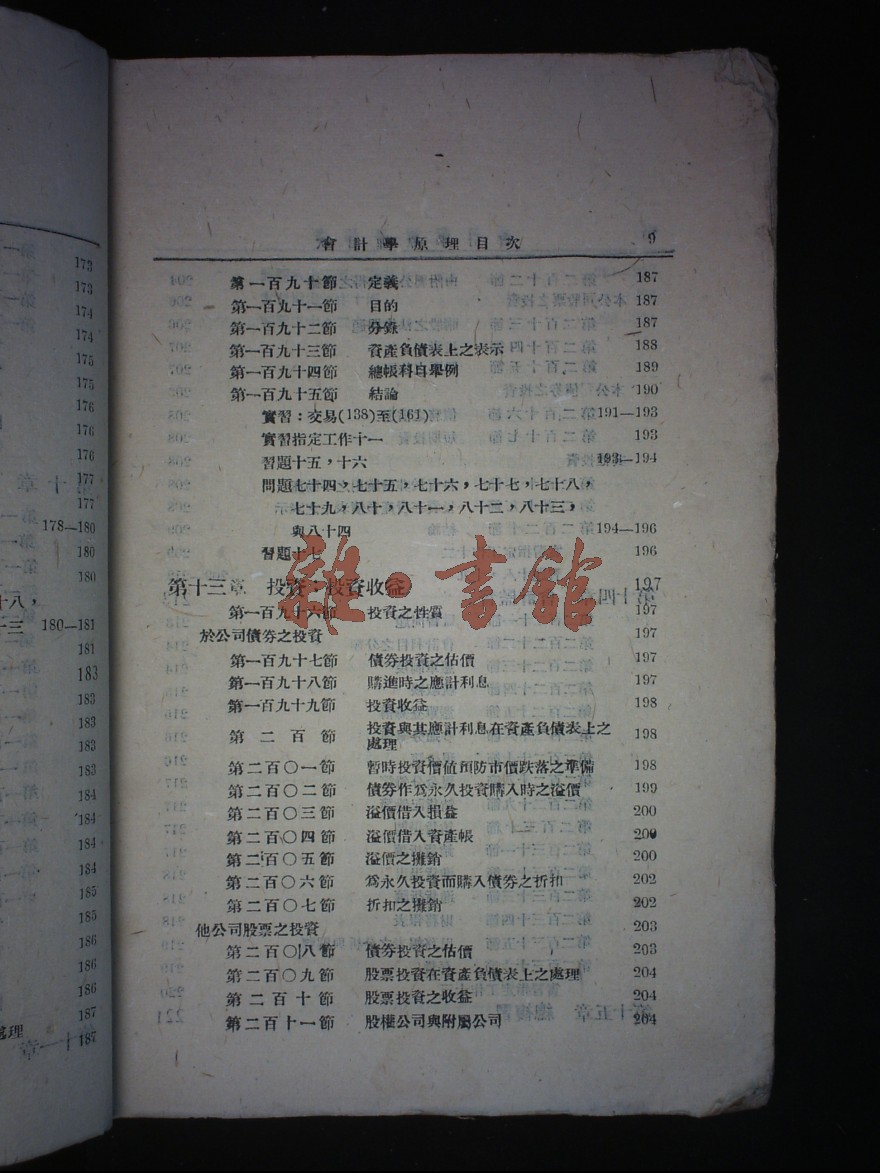 173
173
174
174
175
175
176
176
177
177
178—180
180
180
十八，
十三 180—181
181
183
183
183
183
184
184
184
184
185
185
186
186
186
187
處理
187
會計學原理目次 9
第一百九十節 定義 187
第一百九十一節 目的 187
第一百九十二節 分錄 187
第一百九十三節 資產負債表上之表示 188
第一百九十四節 總帳科目舉例 189
第一百九十五節 結論 190
實習：交易(138)至(161) 191—193
實習指定工作十一 193
習題十五，十六 193—194
問題七十四，七十五，七十六，七十七，七十八，
七十九，八十，八十一，八十二，八十三，
與八十四 194—196
習題十七 196
第十三章 投資；投資收益 197
第一百九十六節 投資之性質 197
於公司債券之投資
第一百九十七節 債券投資之估價 197
第一百九十八節 購進時之應計利息 197
第一百九十九節 投資收益 198
第二百節 投資與其應計利息在資產負債表上之
處理 198
第二百〇一節 暫時投資價值預防市價跌落之準備 198
第二百〇二節 債券作爲永久投資購入時之溢價 199
第二百〇三節 溢價借入損益 200
第二百〇四節 溢價借入資產帳 200
第二百〇五節 溢價之攤銷 200
第二百〇六節 爲永久投資而購入債券之折扣 202
第二百〇七節 折扣之攤銷 202
他公司股票之投資 203
第二百〇八節 債券投資之估價 203
第二百〇九節 股票投資在資產負債表上之處理 204
第二百十節 股票投資之收益 204
第二百十一節 股權公司與附屬公司 204
雜·書館